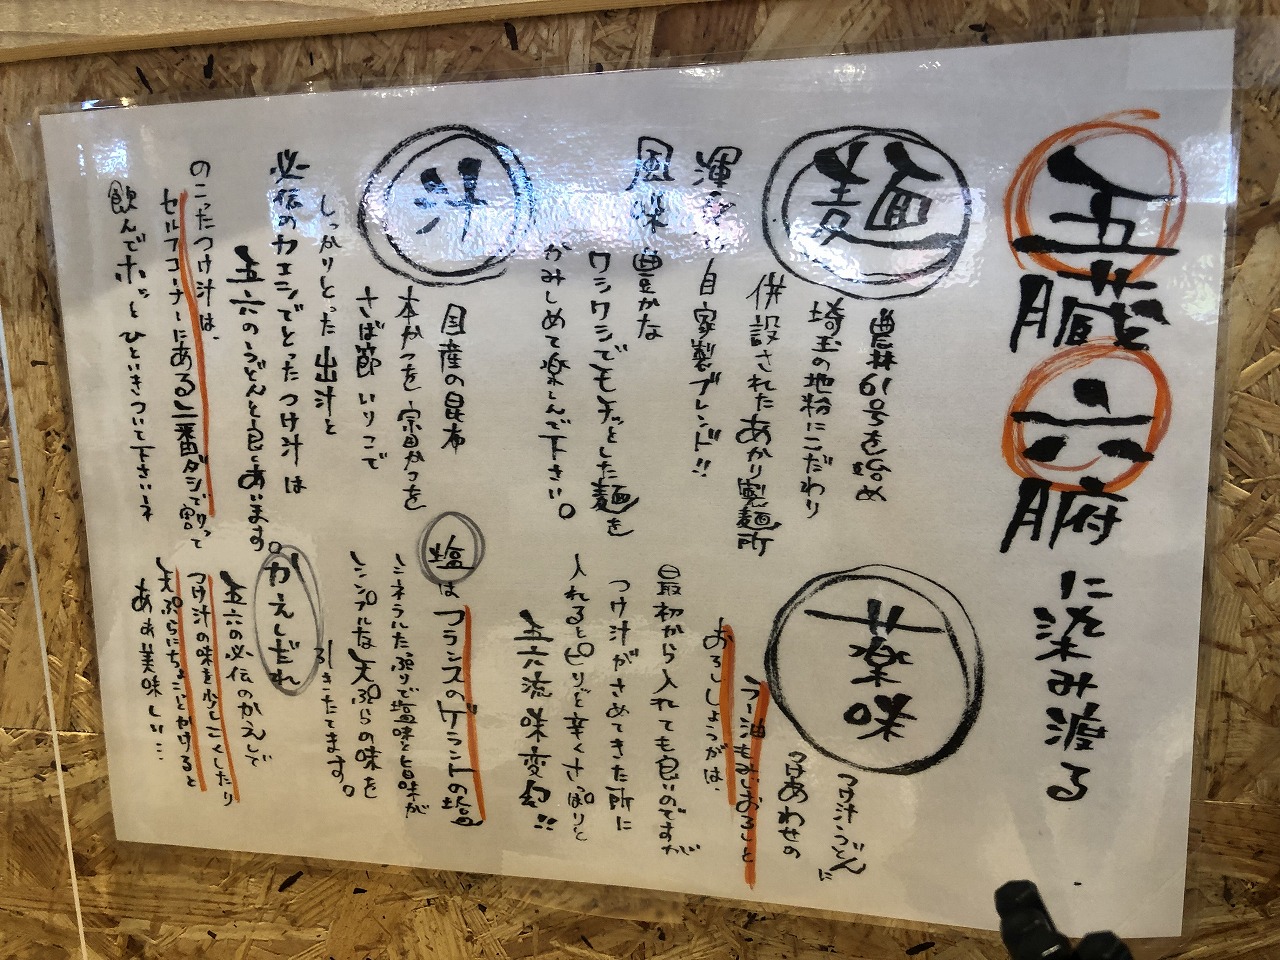 五臓六腑に染み渡る
麺
農林61号を始め
埼玉の地粉にこだわり
併設されたあかり製麺所
渾身の自家製ブレンド!!
風味豊かな
ワシワシでモチッとした麺を
かみしめて楽しんで下さい。
汁
国産の昆布
本かつを宗田かつを
さば節いりこで
しっかりとった出汁と
必伝のカエシでとったつけ汁は
五六のうどんと良くあいます。
のこったつけ汁は、
セルフコーナーにある二番ダシで割って
飲んでホッとひといきついて下さいネ
薬味
つけ汁うどんに
つけあわせの
ラー油もみじおろしと
おろししょうがは、
最初から入れても良いのですが
つけ汁がさめてきた所に
入れるとピリと辛くさっぱりと
五六流味変幻!!
塩はフランスのゲラントの塩
ミネラルたっぷりで塩味と旨味が
シンプルな天ぷらの味を
引きたてます。
かえしだれ
五六の必伝のかえしで
つけ汁の味を少しこくしたり
天ぷらにちょことかけると
ああ美味しい…